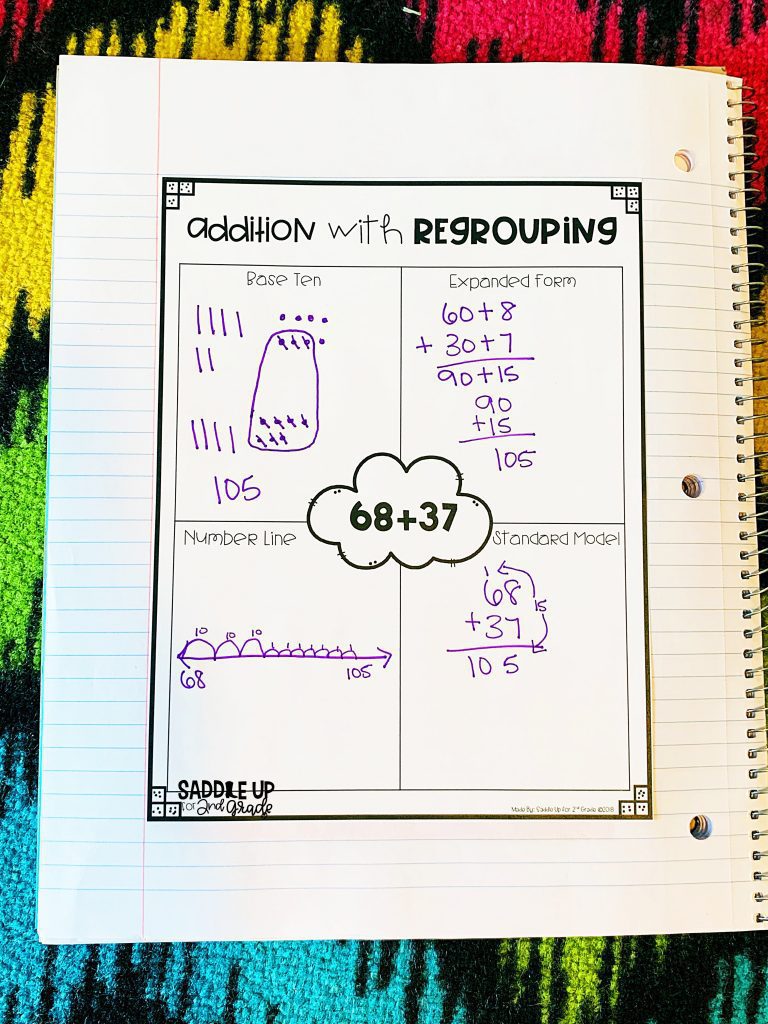 addition with REGROUPING
Base Ten
105
Expanded Form
60+8
+ 30+7
90+15
90
+15
105
68+37
Number Line
10 10 10
68 105
Standard Model
1
68
15
+37
105
SADDLE UP
for 2nd Grade
Made By: Saddle Up For 2nd Grade ©2018